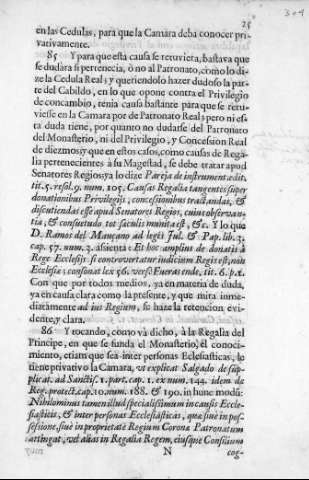 25
304
en las Cedulas, para que la Camara deba conocer pri-
vativamente.
85 Y para que esta causa se retuviera, bastava que
se dudàra si pertenecia, ò no al Patronato, como lo di-
ze la Cedula Real; y queriendolo hazer dudoso la par-
te del Cabildo, en lo que opone contra el Privilegio
de concambio, tenia causa bastante para que se retu-
viesse en la Camara por de Patronato Real; pero ni es-
ta duda tiene, por quanto no dudarse del Patronato
del Monasterio, ni del Privilegio, y Concession Real
de diezmos; y que en estos casos, como causas de Rega-
lia pertenecientes à su Magestad, se debe tratar apud
Senatores Regios; ya lo dize Pareja de instrument. edit.
tit. 5. resol. 9. num. 105. Causas Regalia tangentes super
donationibus Privilegijs, concessionibus tractandas, &
discutiendas esse apud Senatores Regios, cuius observan-
tia, & consuetudo tot sæculis munita est, &c. Y lo que
D. Ramos del Mançano ad legẽ Jul. & Pap. lib. 3.
cap. 57. num. 3. assienta: Et hoc amplius de donatis à
Rege Ecclesijs si controvertatur iudicium Regis est, nõ
Ecclesiæ; consonat lex 56. verso Fueras ende, tit. 6. p. 1.
Con que por todos medios, ya en materia de duda,
ya en causa clara como la presente, y que mira inme-
diatamente ad ius Regium, se haze la retencion evi-
dente, y clara.
86 Y tocando, como và dicho, à la Regalia del
Principe, en que se funda el Monasterio, el conoci-
miento, etiam que sea inter personas Eclesiasticas, le
tiene privativo la Camara, vt explicat Salgado de sup-
plicat. ad Sanctiss. 1. part. cap. 1. ex num. 144. idem de
Reg. protect. cap. 10. num. 188. & 190. in hunc modũ:
Nihilominus tamen illud specialissimum in causis Eccle-
siasticis, & inter personas Ecclesiasticas, quæ sive in pos-
sessione, sive in proprietate Regium Corona Patronatum
attingat, vel alias in Regalia Regem, eiusque Consilium
N
cog-